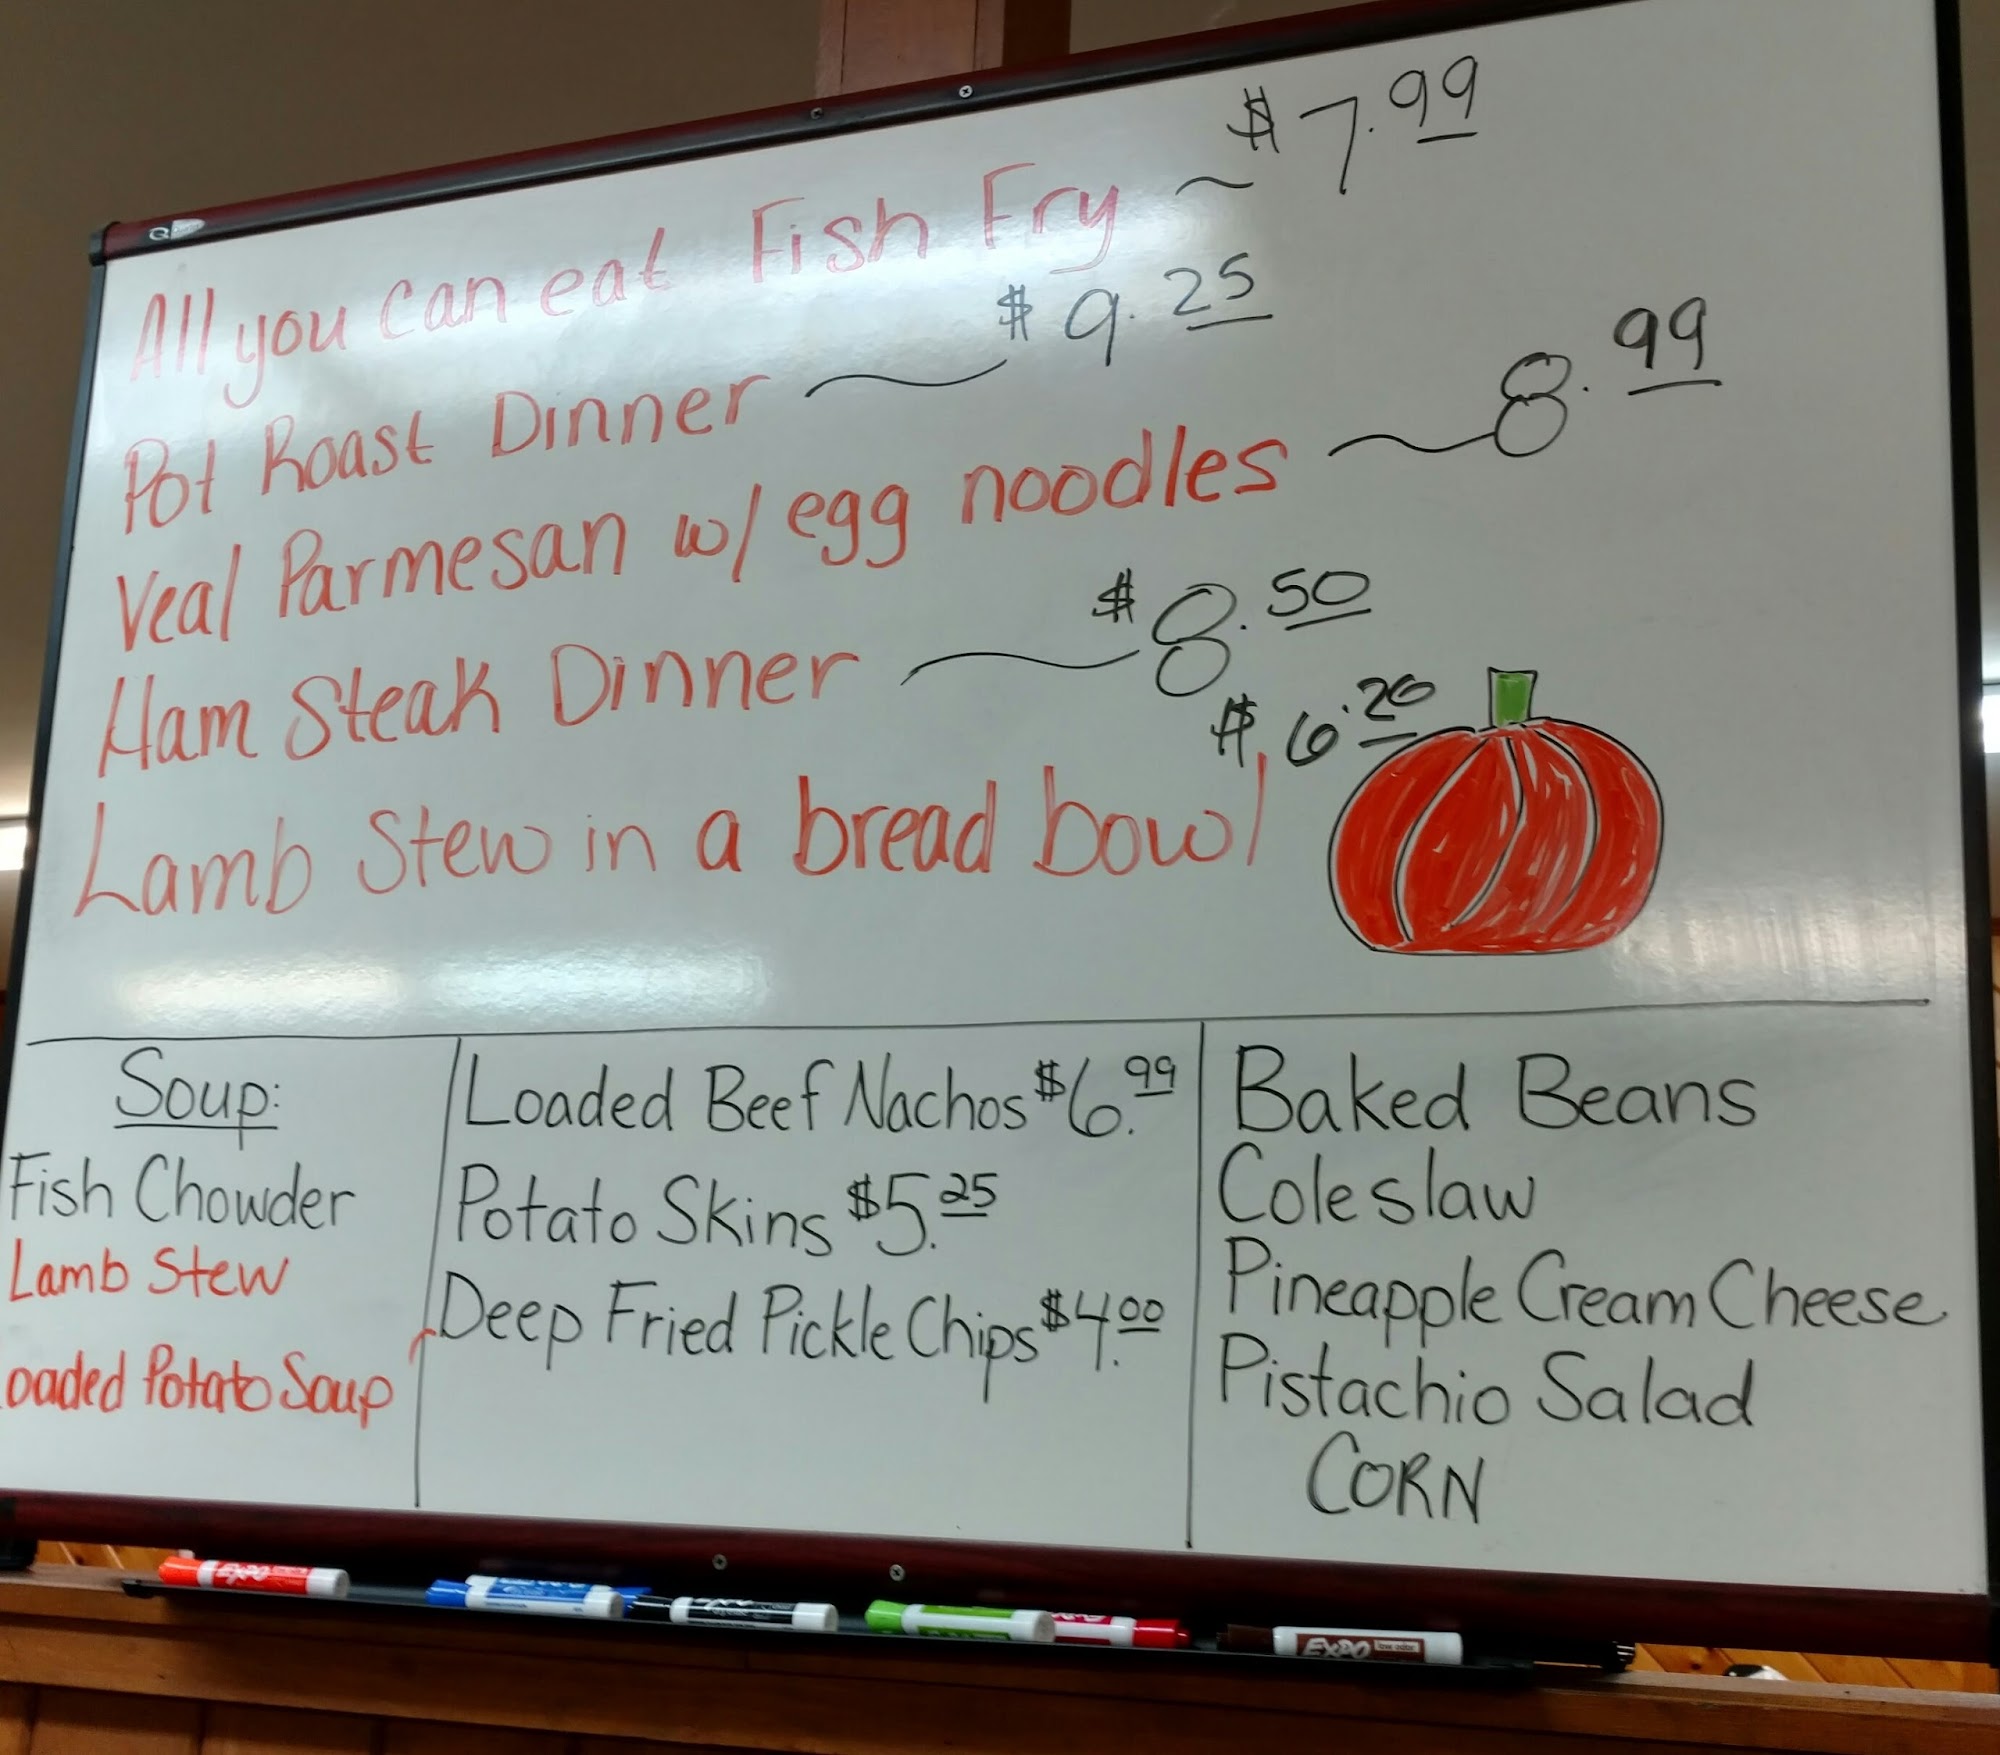 All you can eat Fish Fry ~ $7.99
Pot Roast Dinner ~ $9.25
Veal Parmesan w/ egg noodles ~ 8.99
Ham Steak Dinner ~ $8.50
Lamb Stew in a bread bowl $6.20
Soup:
Fish Chowder
Lamb Stew
Loaded Potato Soup
Loaded Beef Nachos $6.99
Potato Skins $5.25
Deep Fried Pickle Chips $4.00
Baked Beans
Coleslaw
Pineapple Cream Cheese
Pistachio Salad
CORN
EXPO
EXPO low odor